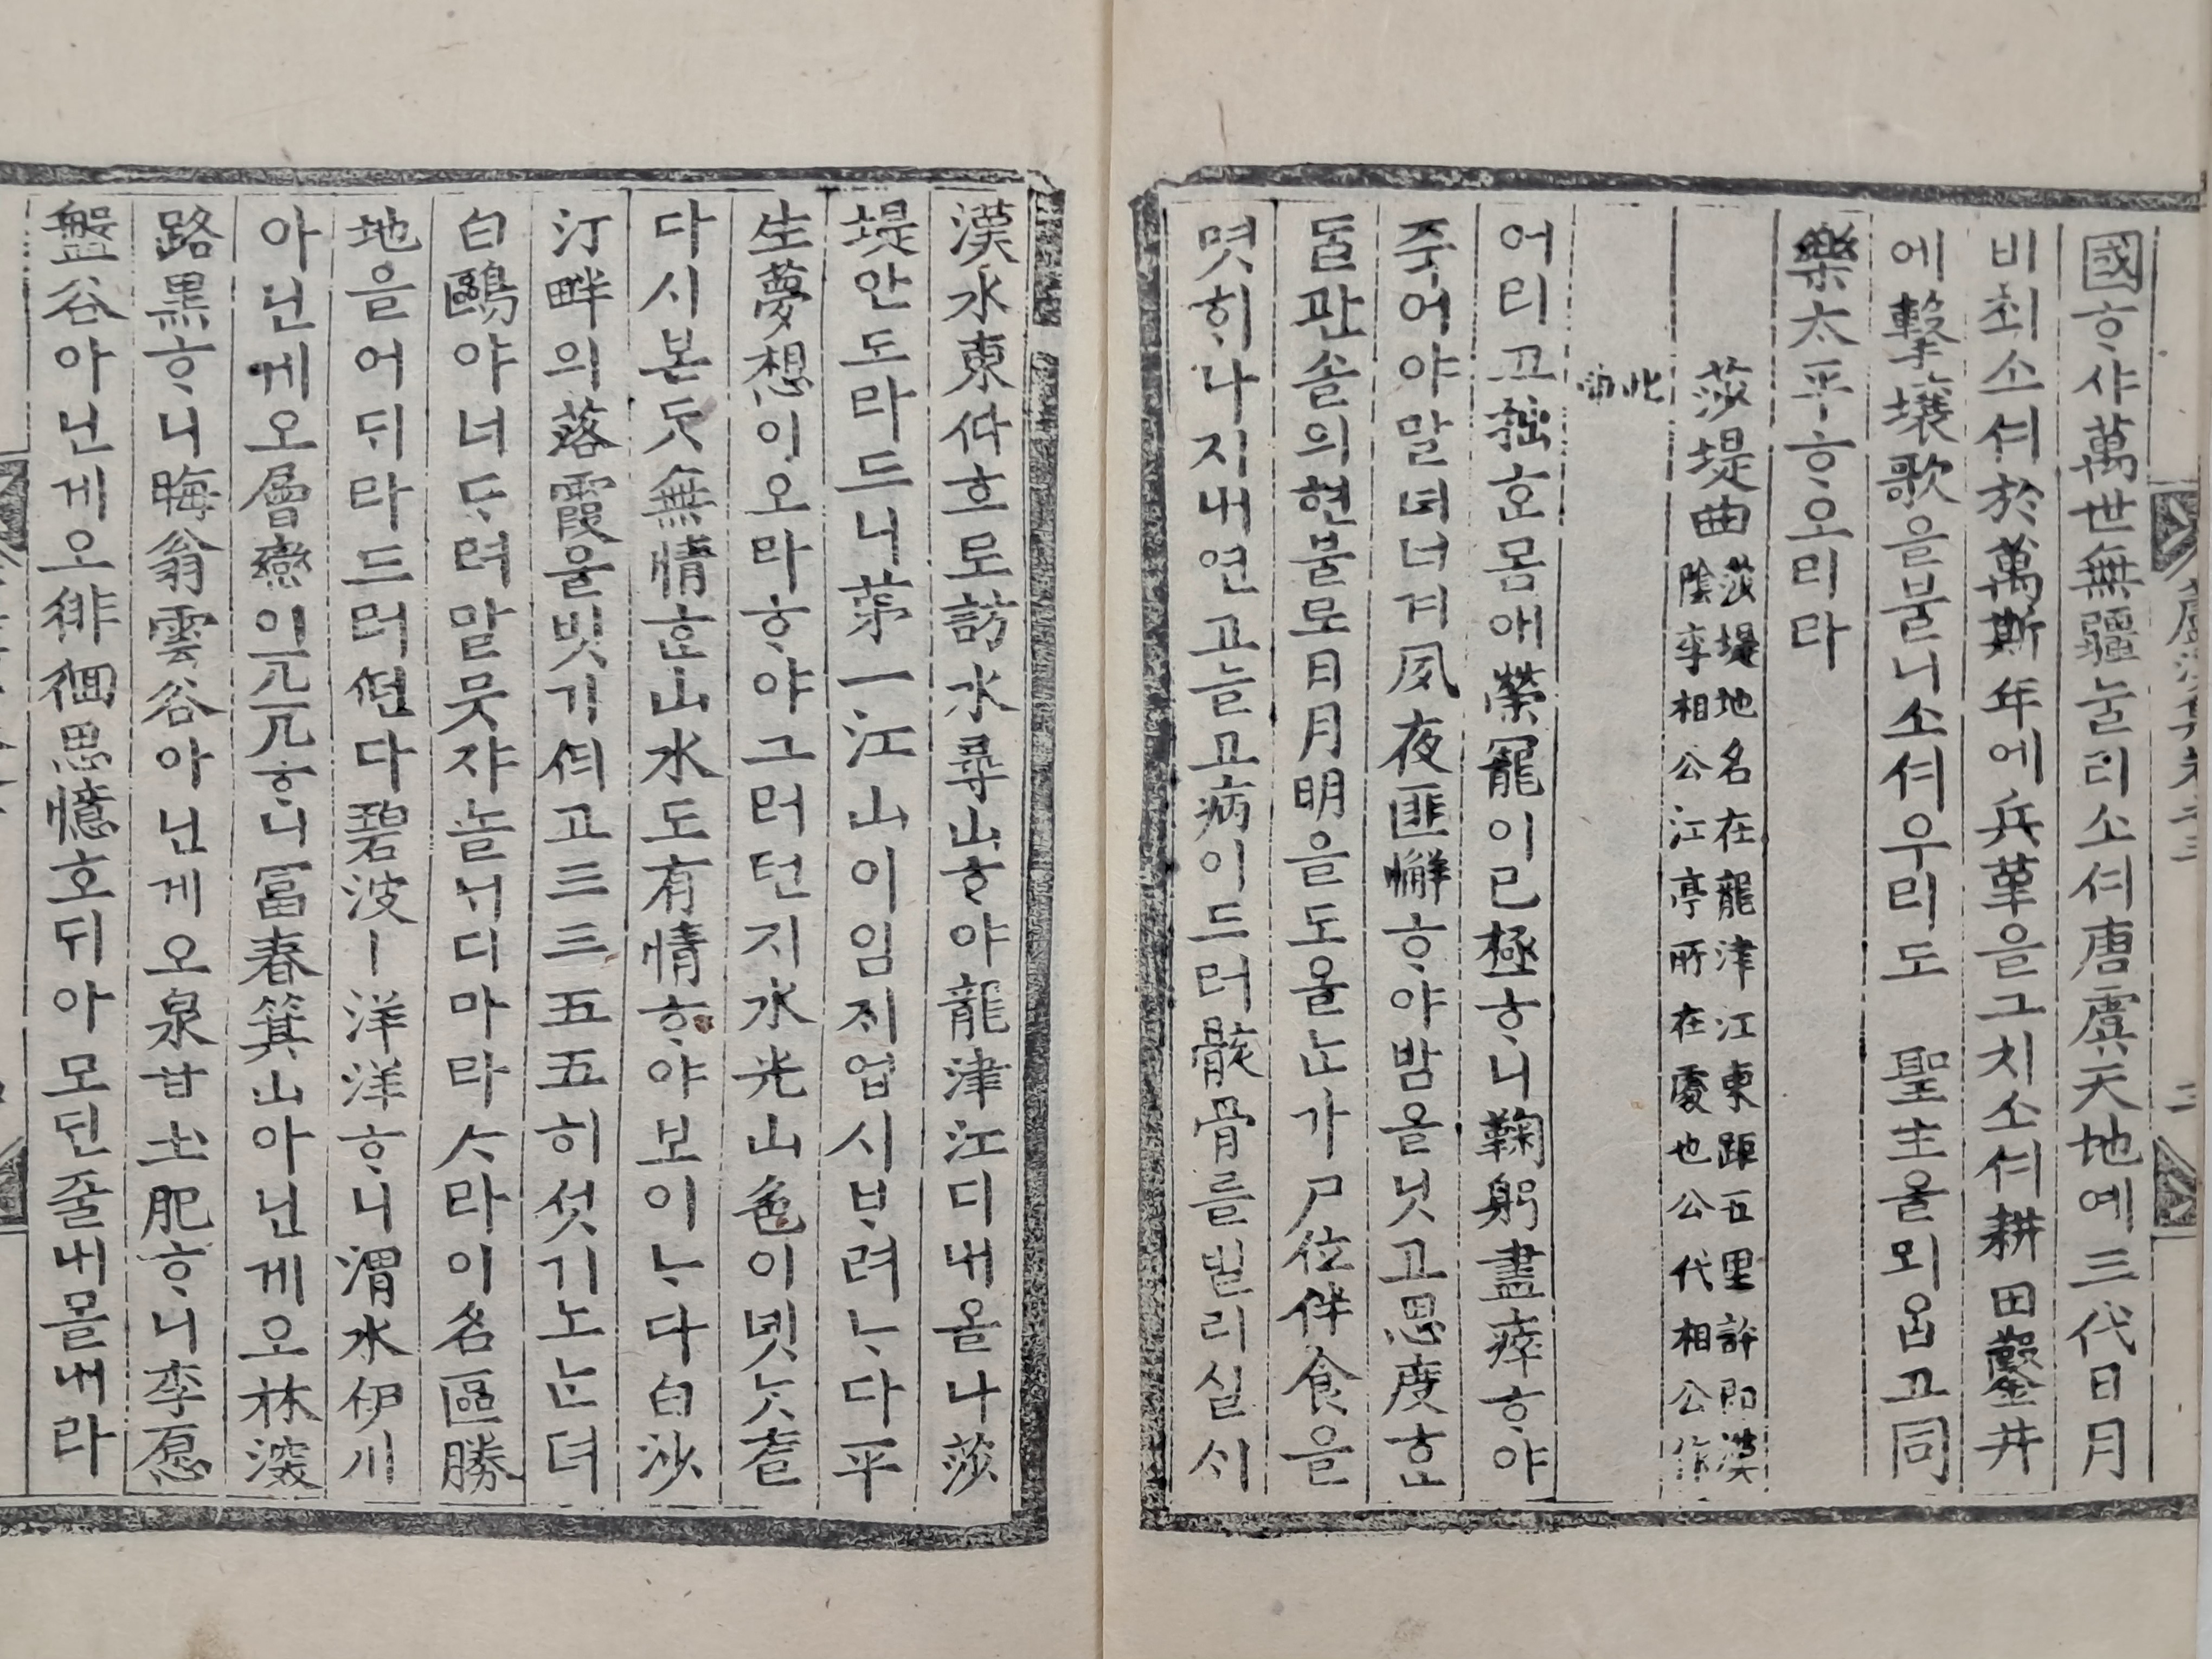 國ᄒᆞ샤萬世無疆눌리소셔唐虞天地예三代日月
비최소셔於萬斯年에兵革을그치소셔耕田鑿井
에擊壤歌을불니소셔우리도 聖主을뫼옵고同
樂太平ᄒᆞ오리라
莎堤曲 莎堤地名在龍津江東距五里許即漢
陰李相公江亭所在處也公代相公作
此曲
어리고拙ᄒᆞᆫ몸애榮寵이已極ᄒᆞ니鞠躬盡瘁ᄒᆞ야
죽어야말녀너겨夙夜匪懈ᄒᆞ야밤을닛고思度ᄒᆞᆫ
ᄃᆞᆯ관솔의현불로日月明을도올ᄂᆞᆫ가尸位伴食을
몃ᄒᆡ나지내연고늘고病이드러骸骨를빌리실ᄉᆡ
漢水東ᄯᅡ흐로訪水尋山ᄒᆞ야龍津江디내올나莎
堤안도라드니第一江山이임ᄌᆡ업시ᄇᆞ려ᄂᆞ다平
生夢想이오라ᄒᆞ야그러턴지水光山色이녯ᄂᆞᆺᄎᆞᆯ
다시본ᄃᆞᆺ無情ᄒᆞᆫ山水도有情ᄒᆞ야보이ᄂᆞ다白沙
汀畔의落霞을빗기ᄯᅴ고三三五五히섯기노ᄂᆞᆫ뎌
白鷗야너ᄃᆞ려말뭇쟈놀ᄂᆡ디마라ᄉᆞ라이名區勝
地을어듸라드러ᄯᅥᆫ다碧波ㅣ洋洋ᄒᆞ니渭水伊川
아닌게오層巒이兀兀ᄒᆞ니富春箕山아닌게오林深
路黑ᄒᆞ니晦翁雲谷아닌게오泉甘土肥ᄒᆞ니李愿
盤谷아닌게오徘徊思憶호ᄃᆡ아모ᄃᆡᆫ줄내몰내라